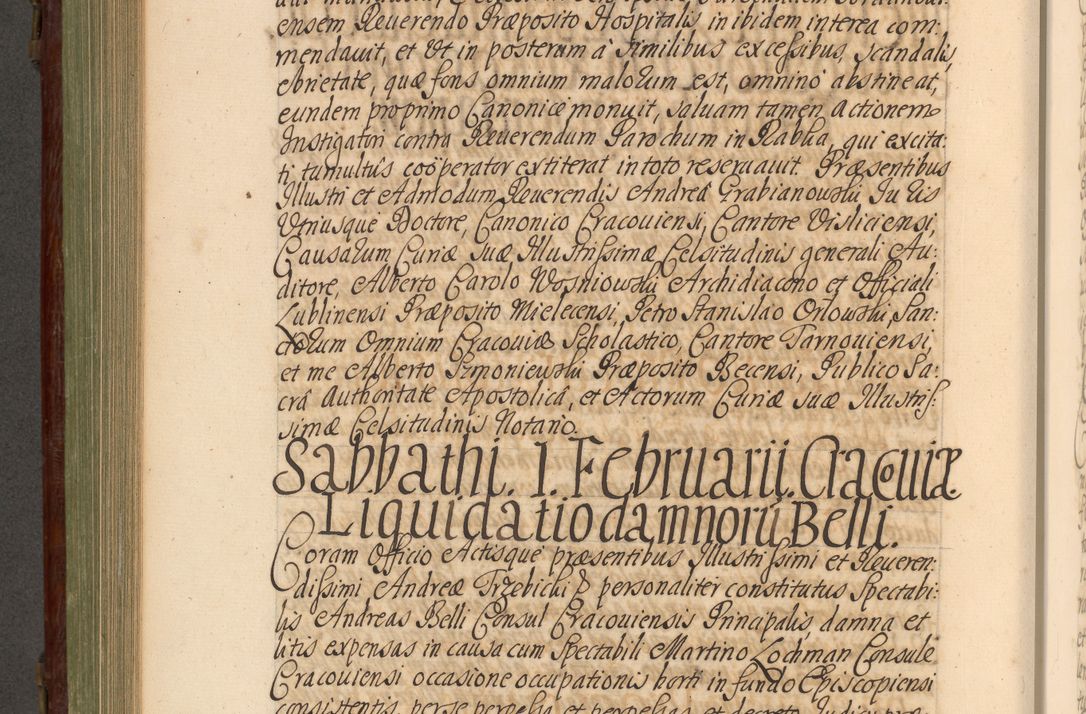 ensem Reuerendo Præposito Hospitalis in ibidem interea com:
mendauit, et Vt in posterum à similibus excessibus, scandalis,
ebrietate, quæ fons omnium malorum est, omninò abstineat,
eundem pro primo Canonicè monuit, saluam tamen actionem
Instigatori contra Reuerendum Parochum in Rabka, qui excita:
ti tumultûs coôperator extiterat in toto reseruauit. Præsentibus
Illustri et Admodum Reuerendis Andreâ Grabianowski, Juris
Vtriusque Doctore, Canonico Cracouiensi, Cantore Visliciensi,
Causarum Curiæ suæ Illustrissimæ Celsitudinis generali Au:
ditore, Alberto Carolo Wosniowski Archidiacono et Officiali
Lublinensi Præposito Mielecensi, Petro Stanislao Orlowski, San:
ctorum Omnium Cracouiæ Scholastico, Cantore Tarnouiensi,
et me Alberto Symoniewski Præposito Becensi, Publico Sa:
crâ Authoritate Apostolicâ, et Actorum Curiæ suæ Illustris:
simæ Celsitudinis Notario.
Sabbathi. 1. Februarii. Cracouiæ
Liquidatio damnorũ Belli.
Coram Officio Actisque præsentibus Illustrissimi et Reueren:
dissimi Andreæ Trzebicki personaliter constitutus Spectabi:
lis Andreas Belli Consul Cracouiensis Principalis, damna et
litis expensas in causa cum Spectabili Martino Lochman Consule
Cracouiensi occasione occupationis horti in fundo Episcopiensi
consistentis per se perpelia et decreto